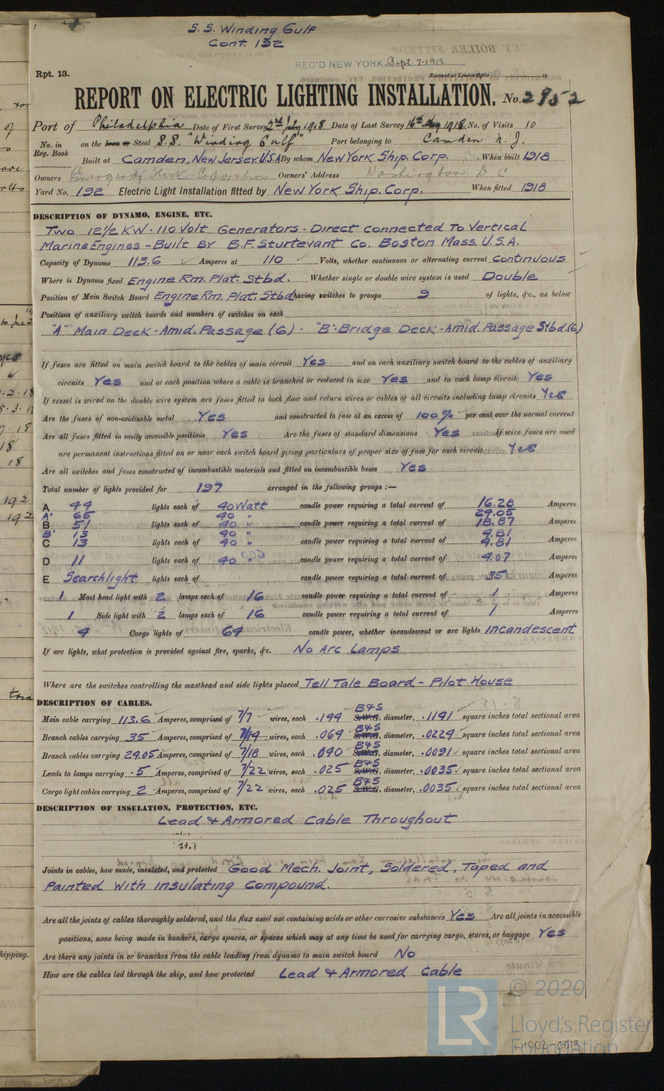 S.S. Winding Gulf
Cont. 132
REC'D NEW YORK Sept 7-1918
Rpt. 13.
REPORT ON ELECTRIC LIGHTING INSTALLATION. No. 2952
Port of Philadelphia Date of First Survey 2nd July 1918 Date of Last Survey 16th Aug 1918 No. of Visits 10
No. in Reg. Book on the Iron or Steel S.S. "Winding Gulf" Port belonging to Camden N.J.
Built at Camden, New Jersey U.S.A By whom New York Ship. Corp. When built 1918
Owners Emergency Fleet Corporation Owners' Address Washington D.C.
Yard No. 192 Electric Light Installation fitted by New York Ship. Corp. When fitted 1918
DESCRIPTION OF DYNAMO, ENGINE, ETC.
Two 12½ KW - 110 Volt Generators - Direct connected To Vertical
Marine Engines - Built By B.F. Sturtevant Co. Boston Mass. U.S.A.
Capacity of Dynamo 113.6 Amperes at 110 Volts, whether continuous or alternating current Continuous
Where is Dynamo fixed Engine Rm. Plat. Stbd. Whether single or double wire system is used Double
Position of Main Switch Board Engine Rm. Plat. Stbd. having switches to groups 9 of lights, &c., as below
Positions of auxiliary switch boards and numbers of switches on each
"A" Main Deck - Amid. Passage (6) - "B" - Bridge Deck - Amid. Passage Stbd (6)
If fuses are fitted on main switch board to the cables of main circuit Yes and on each auxiliary switch board to the cables of auxiliary
circuits Yes and at each position where a cable is branched or reduced in size Yes and to each lamp circuit Yes
If vessel is wired on the double wire system are fuses fitted to both flow and return wires or cables of all circuits including lamp circuits Yes
Are the fuses of non-oxidizable metal Yes and constructed to fuse at an excess of 100% per cent over the normal current
Are all fuses fitted in easily accessible positions Yes Are the fuses of standard dimensions Yes If wire fuses are used
are permanent instructions fitted on or near each switch board giving particulars of proper size of fuse for each circuit Yes
Are all switches and fuses constructed of incombustible materials and fitted on incombustible bases Yes
Total number of lights provided for 197 arranged in the following groups :—
A 44 lights each of 40 Watt candle power requiring a total current of 16.28 Amperes
A' 65 40 " 24.05
B 51 lights each of 40 " candle power requiring a total current of 18.87 Amperes
B' 13 40 " 4.81
C 13 lights each of 40 " candle power requiring a total current of 4.81 Amperes
D 11 lights each of 40 " candle power requiring a total current of 4.07 Amperes
E Searchlight lights each of candle power requiring a total current of 35 Amperes
1 Mast head light with 2 lamps each of 16 candle power requiring a total current of 1 Amperes
1 Side light with 2 lamps each of 16 candle power requiring a total current of 1 Amperes
4 Cargo lights of 64 candle power, whether incandescent or arc lights Incandescent
If arc lights, what protection is provided against fire, sparks, &c. No Arc Lamps
Where are the switches controlling the masthead and side lights placed Tell Tale Board - Pilot House
DESCRIPTION OF CABLES.
Main cable carrying 113.6 Amperes, comprised of 7/7 wires, each .144 B&S S.W.G. diameter, .1141 square inches total sectional area
Branch cables carrying 35 Amperes, comprised of 7/14 wires, each .064 B&S S.W.G. diameter, .0224 square inches total sectional area
Branch cables carrying 24.05 Amperes, comprised of 7/18 wires, each .040 B&S S.W.G. diameter, .0091 square inches total sectional area
Leads to lamps carrying .5 Amperes, comprised of 7/22 wires, each .025 B&S S.W.G. diameter, .0035 square inches total sectional area
Cargo light cables carrying 2 Amperes, comprised of 7/22 wires, each .025 B&S S.W.G. diameter, .0035 square inches total sectional area
DESCRIPTION OF INSULATION, PROTECTION, ETC.
Lead & Armored Cable Throughout
Joints in cables, how made, insulated, and protected Good Mech. Joint, Soldered, Taped and
Painted With Insulating Compound.
Are all the joints of cables thoroughly soldered, and the flux used not containing acids or other corrosive substances Yes Are all joints in accessible
positions, none being made in bunkers, cargo spaces, or spaces which may at any time be used for carrying cargo, stores, or baggage Yes
Are there any joints in or branches from the cable leading from dynamo to main switch board No
How are the cables led through the ship, and how protected Lead & Armored Cable
LR © 2020
Lloyd's Register
Foundation